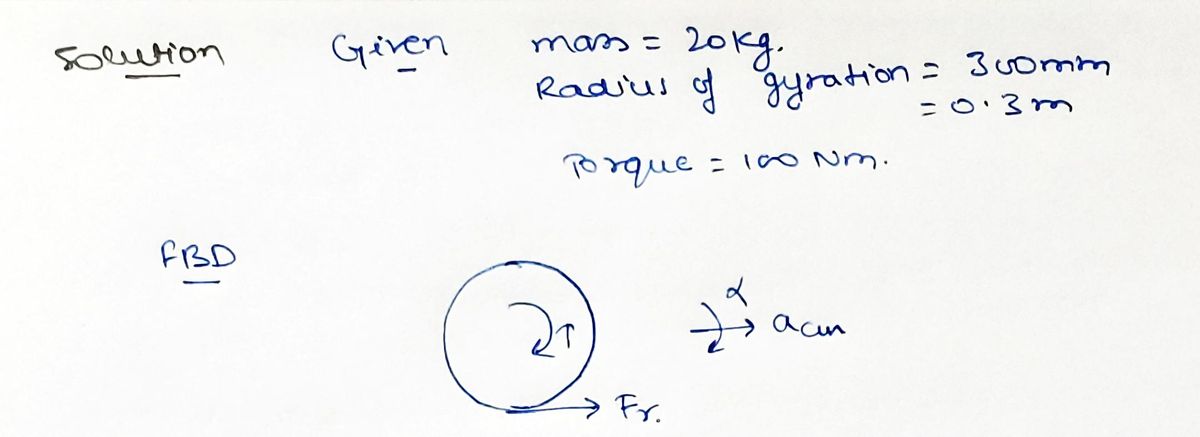 Solution Given mass = 20kg.
Radius of gyration = 300mm
= 0.3m
Torque = 100 Nm.
FBD
α
τ
acm
Fr.